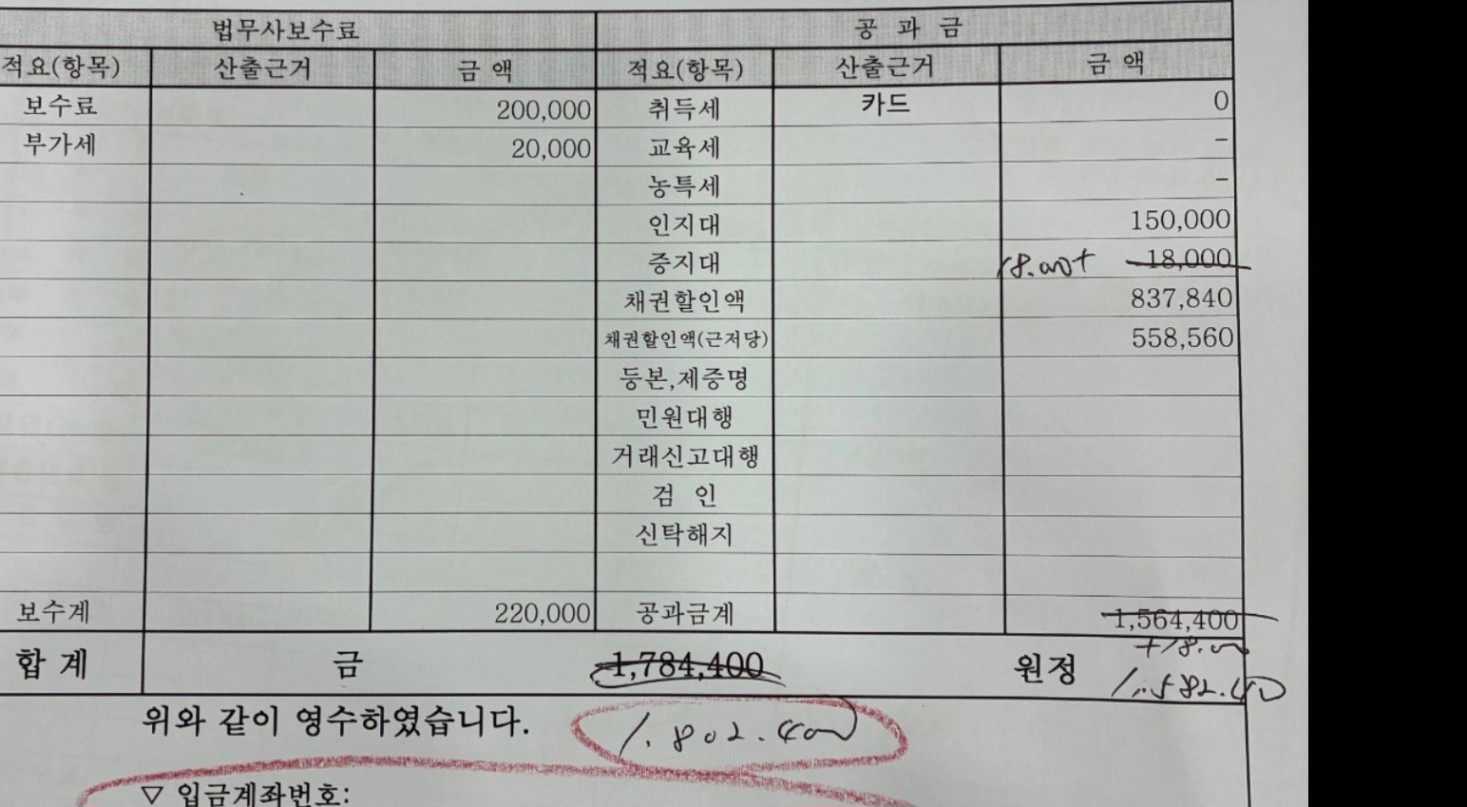 법무사보수료 공 과 금
적요(항목) 산출근거 금 액 적요(항목) 산출근거 금 액
보수료 200,000 취득세 카드 0
부가세 20,000 교육세 -
농특세 -
인지대 150,000
증지대 18,000
채권할인액 837,840
채권할인액(근저당) 558,560
등본,제증명
민원대행
거래신고대행
검 인
신탁해지
보수계 220,000 공과금계 1,564,400
합 계 금 1,784,400 원정
위와 같이 영수하였습니다. 1.802.400
▽ 입금계좌번호: